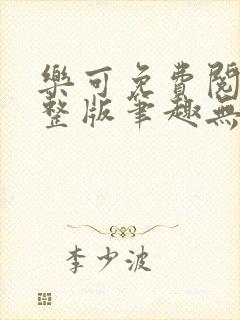 樂可免費閱
整版筆趣無
李少波